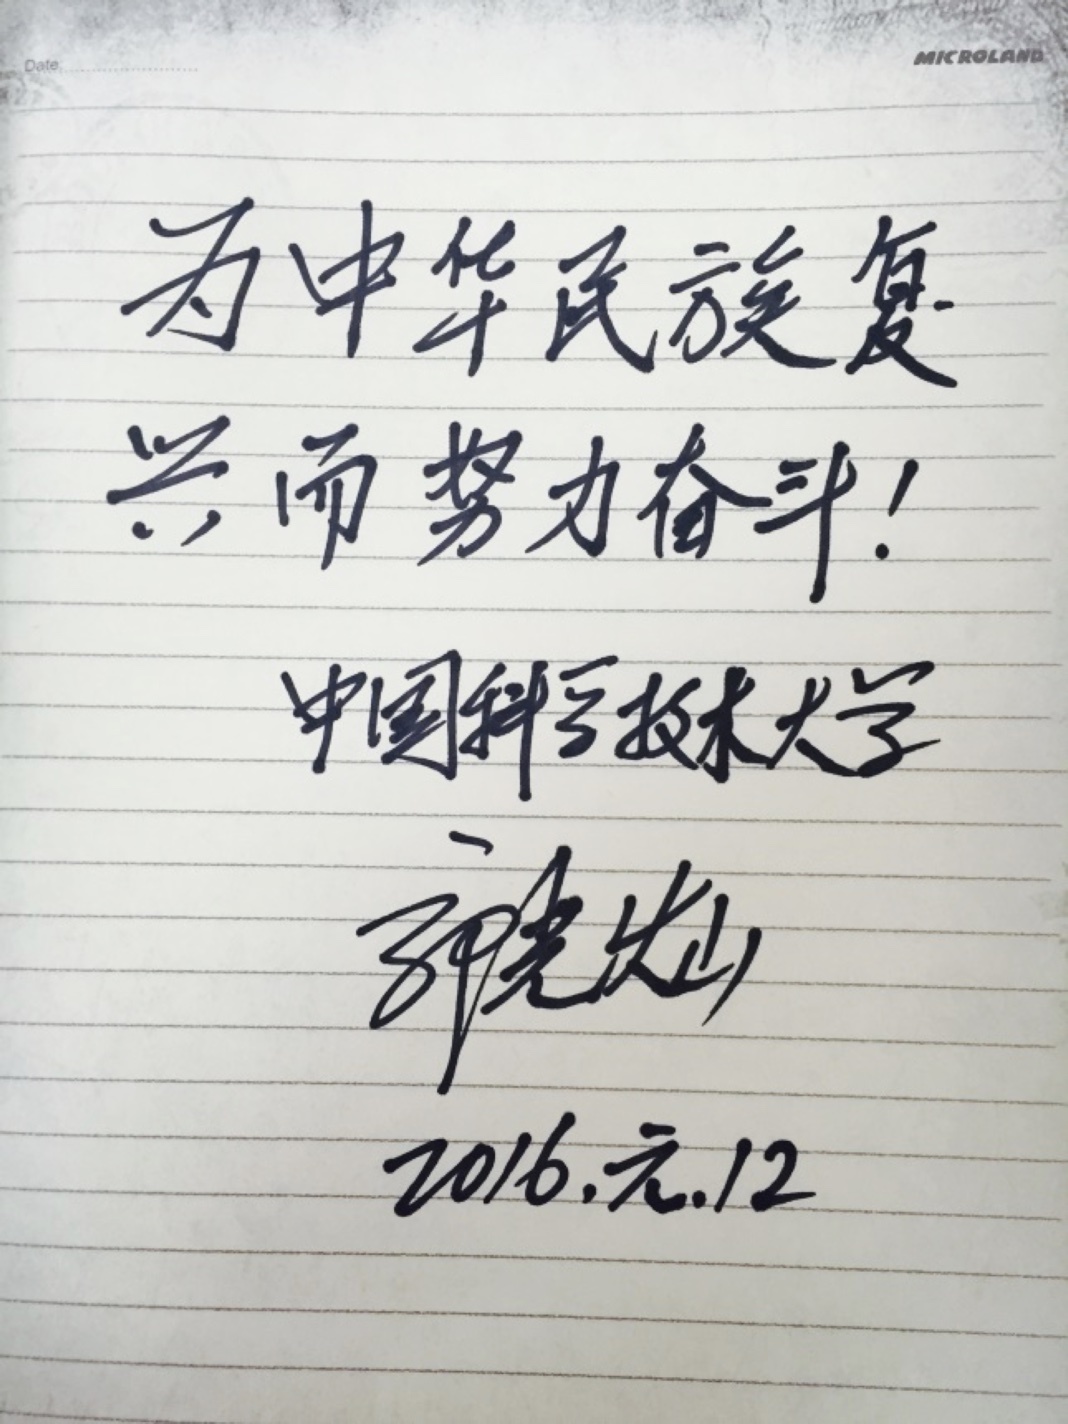 Date
MICROLAND
为中华民族复
兴而努力奋斗！
中国科学技术大学
郭光灿
2016.元.12